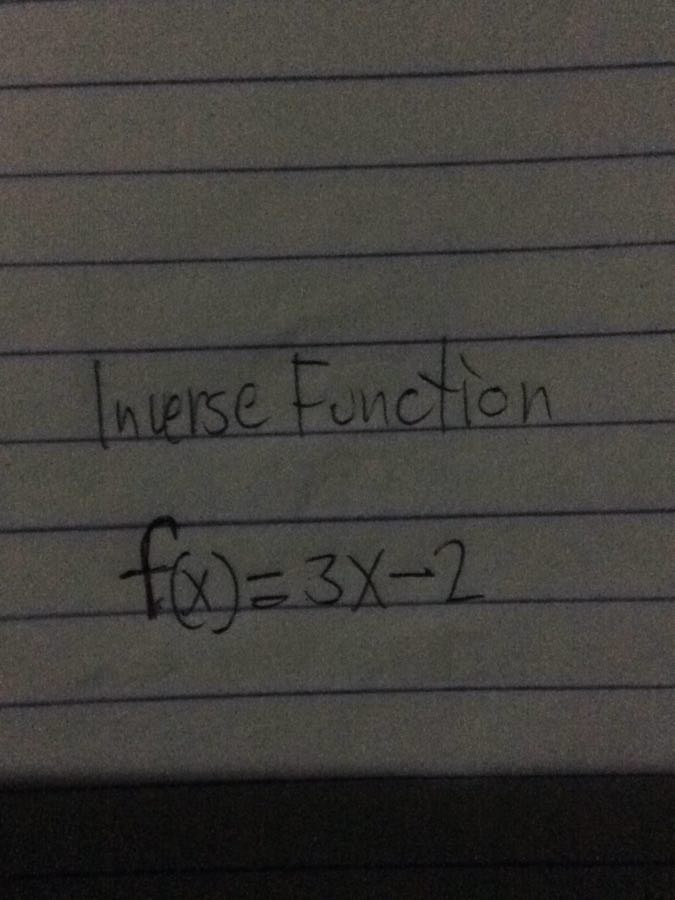 Inverse Function
f(x) = 3x - 2